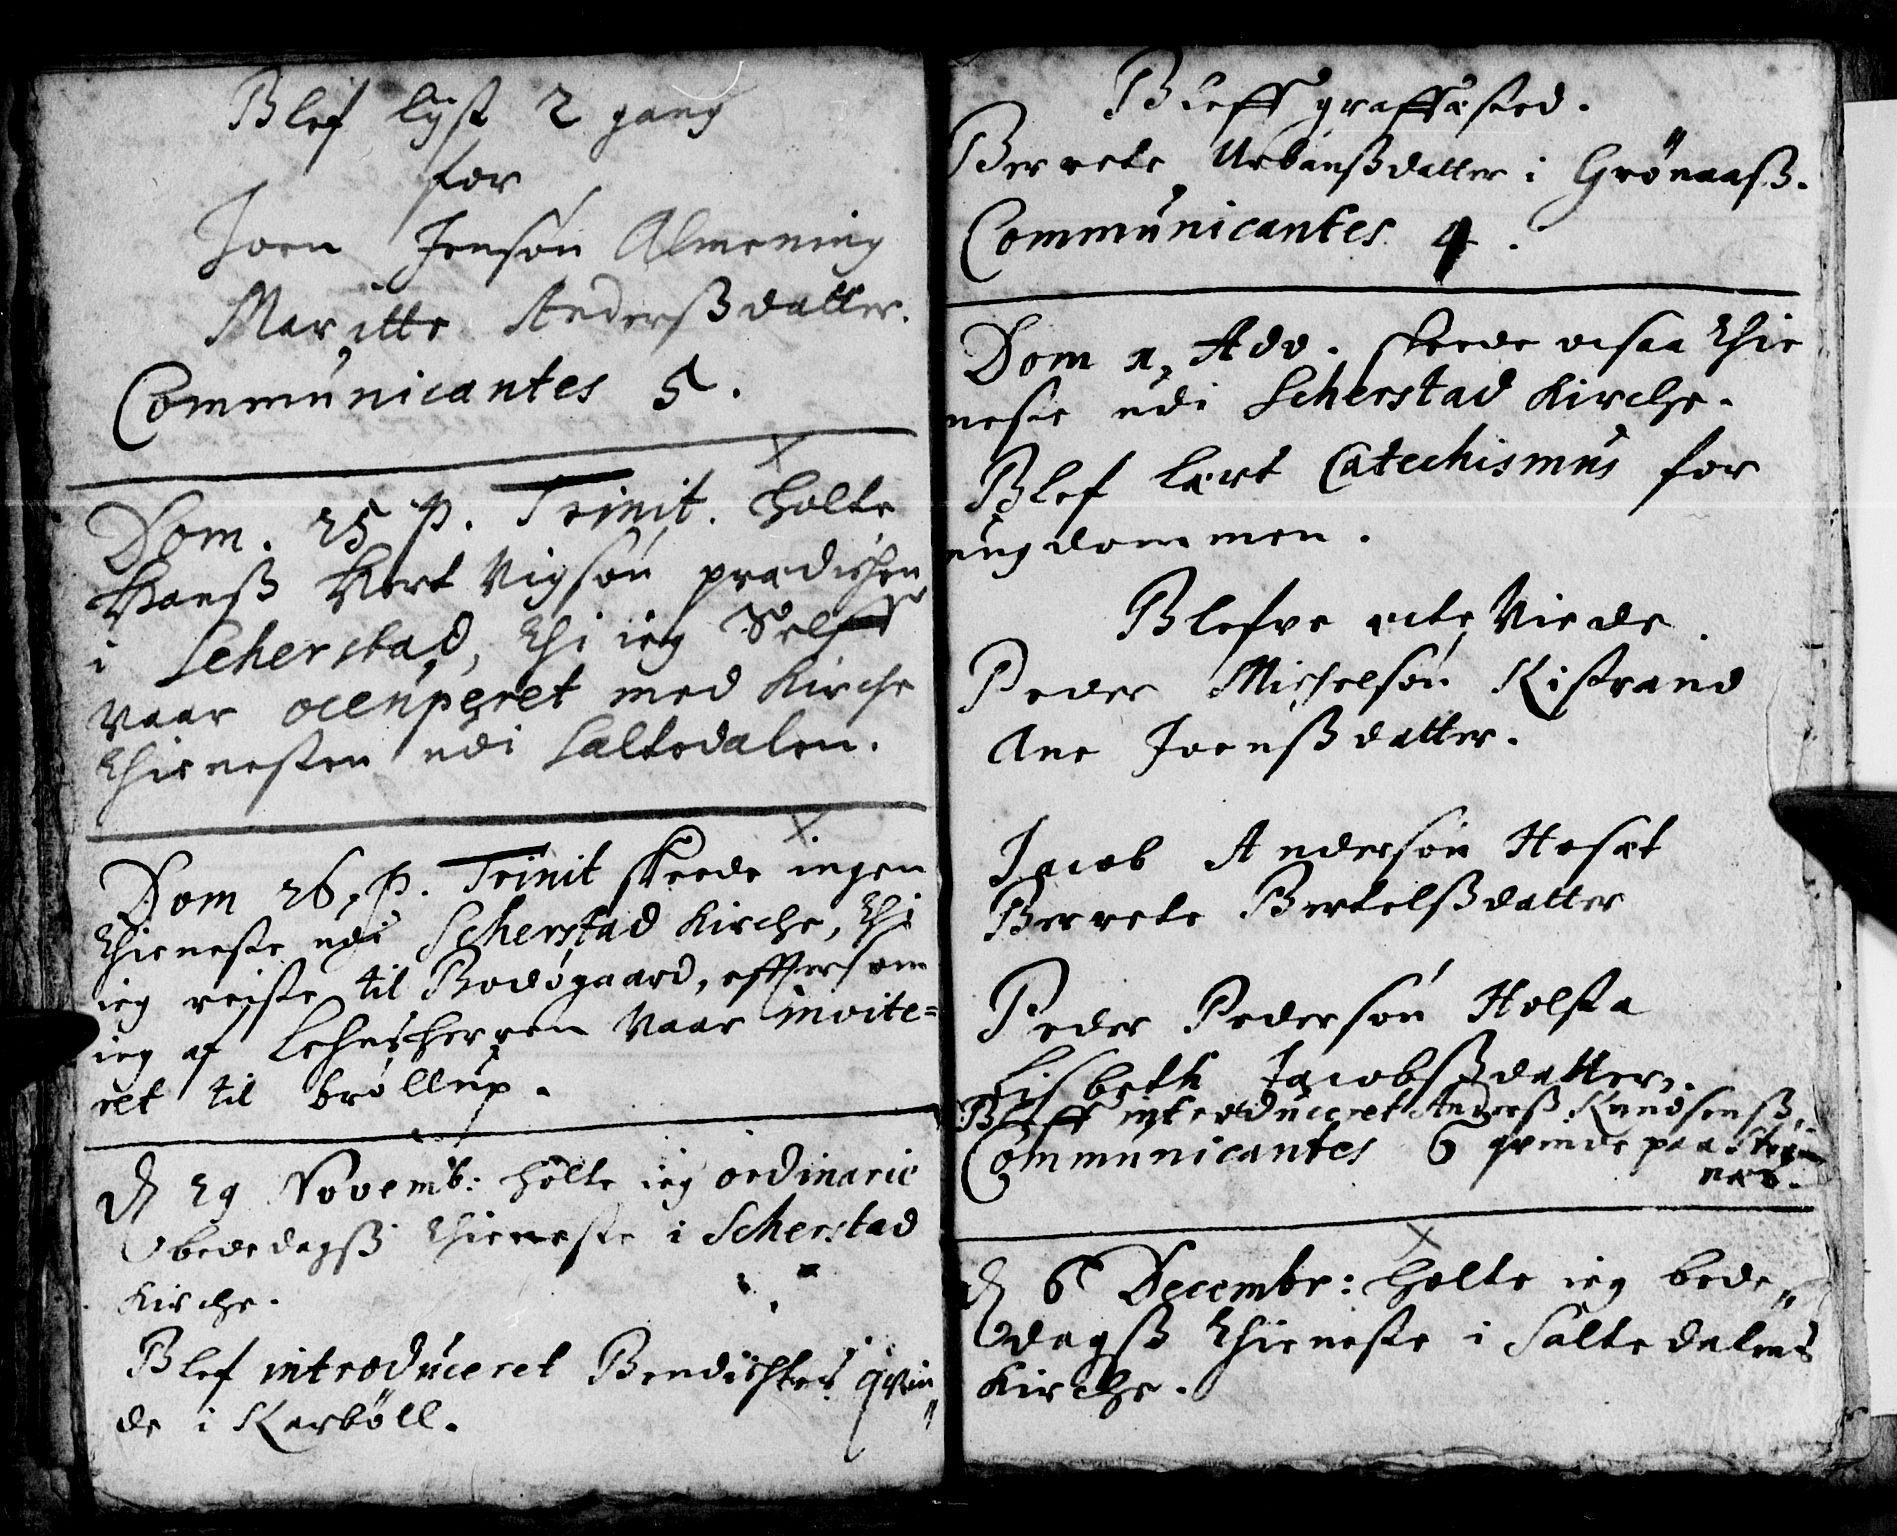 Blef lyst 2 gang
for
Joen Jensøn Almening
Maritte Anderßdatter.
Communicantes 5.
Dom. 25 p. Trinit. holte
Hanß Hert Vigsøn prædichen
i Scherstad, thi ieg Selff
vaar occuperet med Kirche
thienesten udi Saltedalen.
Dom 26, p. Trinit skeede ingen
thieneste udi Scherstad Kirche, thi
ieg reiste til Bodøgaard, efftersom
ieg af Lehnsherren vaar invite=
ret til brøllup.
d 29 Novemb: holte ieg ordinarie
bededagß thieneste i Scherstad
Kirche.
Blef introduceret Bendichtes qvin„
de i Karbøll.
Bleff graffæsted.
Berrete Urbanßdatter i Grønaaß.
Communicantes 4.
Dom 1, Adv. skeede ocsaa thie
neste udi Scherstad Kirche.
Blef lært Catechismus for
ungdommen.
Blefve ecte Viede.
Peder Michelsøn Kistrand
Ane Joenßdatter.
Jacob Andersøn Hosæt
Berrete Bertelßdatter
Peder Pedersøn Holsta
Lisbeth Jacobßdatter.
Bleff introduceret Anderß Knudsenß
Communicantes 6 qvinde paa
næs.
d 6 Decembr: holte ieg bede„
dagß thieneste i Saltedalens
Kirche.